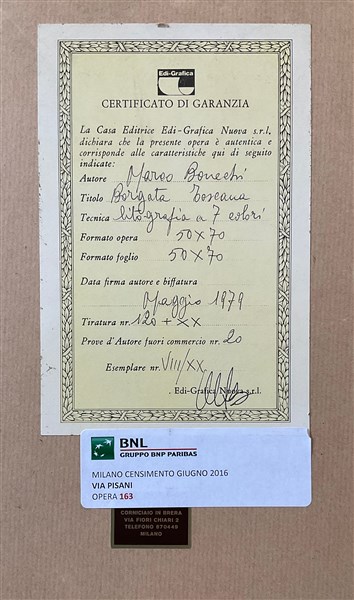 Edi-Grafica
CERTIFICATO DI GARANZIA
La Casa Editrice Edi-Grafica Nuova s.r.l,
dichiara che la presente opera è autentica e
corrisponde alle caratteristiche qui di seguito
indicate:
Autore Marco Bonechi
Titolo Borgata Toscana
Tecnica lito-grafia a 7 colori
Formato opera 50x70
Formato foglio 50x70
Data firma autore e biffatura
Maggio 1979
Tiratura nr. 120 + XX
Prove d'Autore fuori commercio nr. 20
Esemplare nr. VIII/XX
Edi-Grafica Nuova s.r.l.
BNL
GRUPPO BNP PARIBAS
MILANO CENSIMENTO GIUGNO 2016
VIA PISANI
OPERA 163
CORNICIAIO IN BRERA
VIA FIORI CHIARI 2
TELEFONO 870449
MILANO